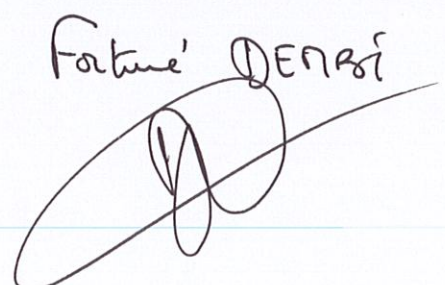 Fortuné DEMBÍ